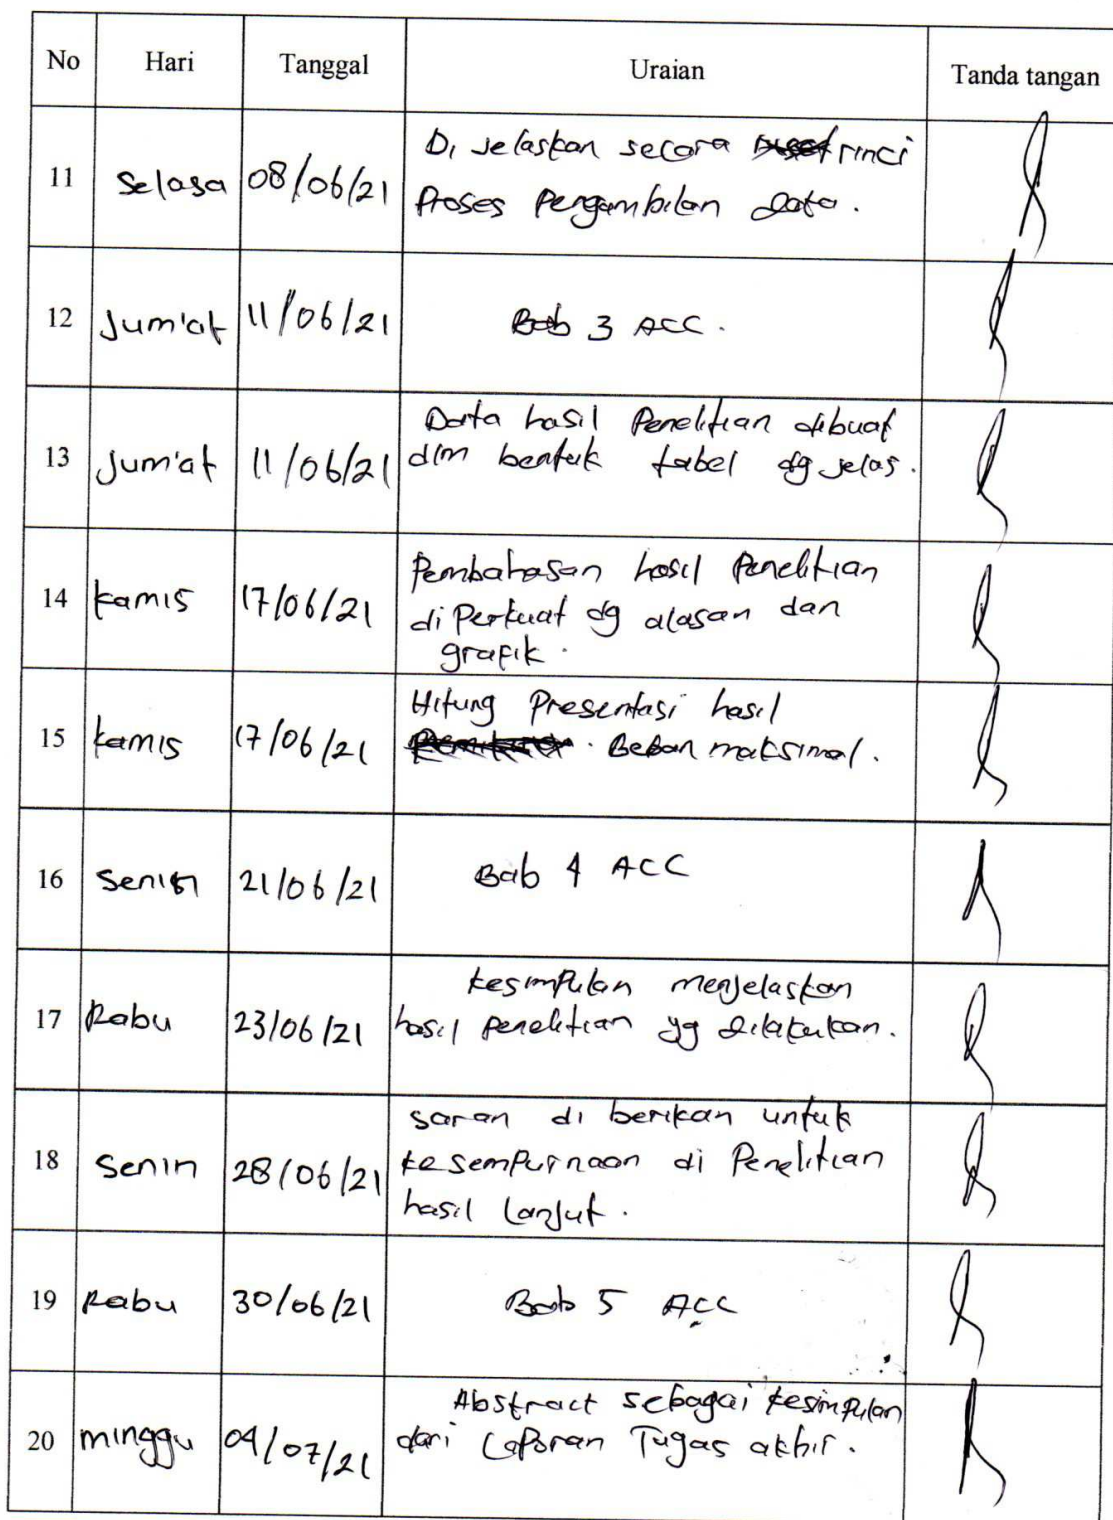 No Hari Tanggal Uraian Tanda tangan
11 Selasa 08/06/21 Di jelaskan secara rinci
Proses Pengambilan data.
12 Jum'at 11/06/21 Bab 3 ACC.
13 Jum'at 11/06/21 Data hasil Penelitian dibuat
dlm bentuk tabel dg jelas.
14 kamis 17/06/21 Pembahasan hasil Penelitian
di Perkuat dg alasan dan
grafik.
15 kamis 17/06/21 Hitung Presentasi hasil
Beban maksimal.
16 Senin 21/06/21 Bab 4 ACC
17 Rabu 23/06/21 kesimpulan menjelaskan
hasil Penelitian yg dilakukan.
18 Senin 28/06/21 saran di berikan untuk
kesempurnaan di Penelitian
hasil lanjut.
19 Rabu 30/06/21 Bab 5 ACC
20 minggu 04/07/21 Abstract sebagai kesimpulan
dari Laporan Tugas akhir.